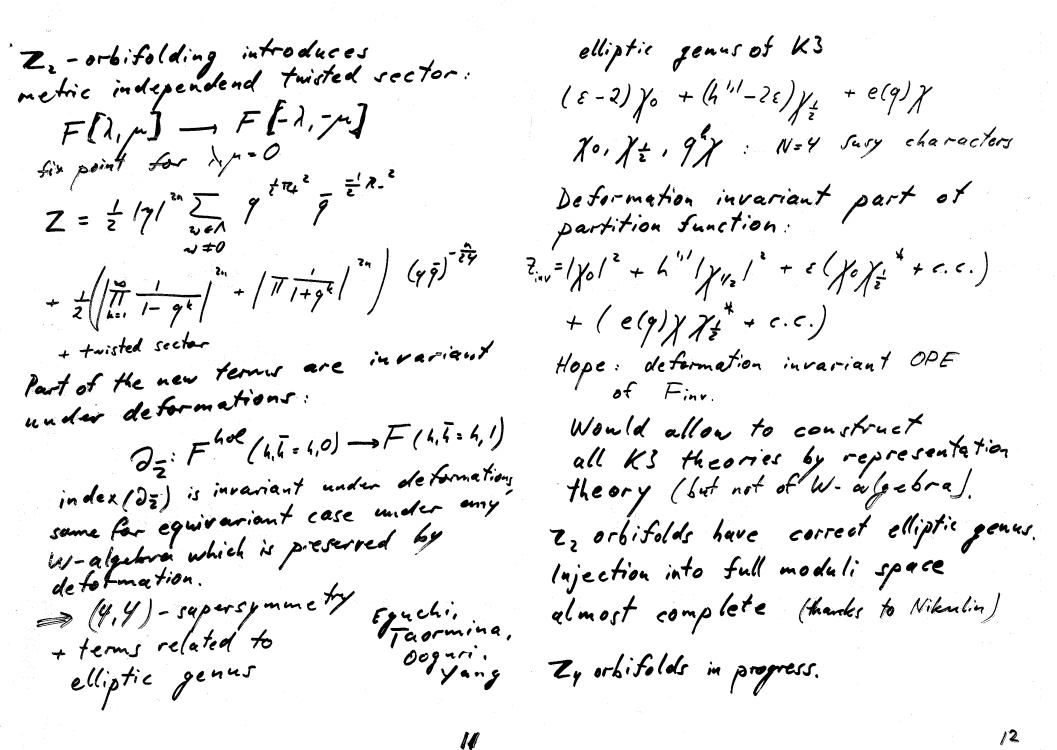 Z₂-orbifolding introduces
metric independend twisted sector:
F[λ,μ] → F[-λ,-μ]
fix point for λ,μ=0
Z = 1/2 |η|²ⁿ Σ q^{1/2 π₊²} q̄^{-1/2 π₋²}
w∈Λ
w≠0
+ 1/2 ( |∏_{k=1}^∞ 1/(1-q^k)|²ⁿ + |∏ 1/(1+q^k)|²ⁿ ) (q q̄)^{-n/24}
+ twisted sector
Part of the new terms are invariant
under deformations:
∂_z̄: F^hol (h,h̄=h,0) → F(h,h̄=h,1)
index(∂_z̄) is invariant under deformations,
same for equivariant case under any
W-algebra which is preserved by
deformation.
⇒ (4,4)-supersymmetry
+ terms related to
elliptic genus
Eguchi,
Taormina,
Ooguri,
Yang
11
elliptic genus of K3
(ε-2)χ₀ + (h^{1,1}-2ε)χ_{1/2} + e(q)χ
χ₀, χ_{1/2}, q^h χ : N=4 susy characters
Deformation invariant part of
partition function:
Z_inv = |χ₀|² + h^{1,1}|χ_{1/2}|² + ε(χ₀χ_{1/2}* + c.c.)
+ (e(q)χ χ_{1/2}* + c.c.)
Hope: deformation invariant OPE
of F_inv.
Would allow to construct
all K3 theories by representation
theory (but not of W-algebra).
Z₂ orbifolds have correct elliptic genus.
Injection into full moduli space
almost complete (thanks to Nikulin)
Z₄ orbifolds in progress.
12